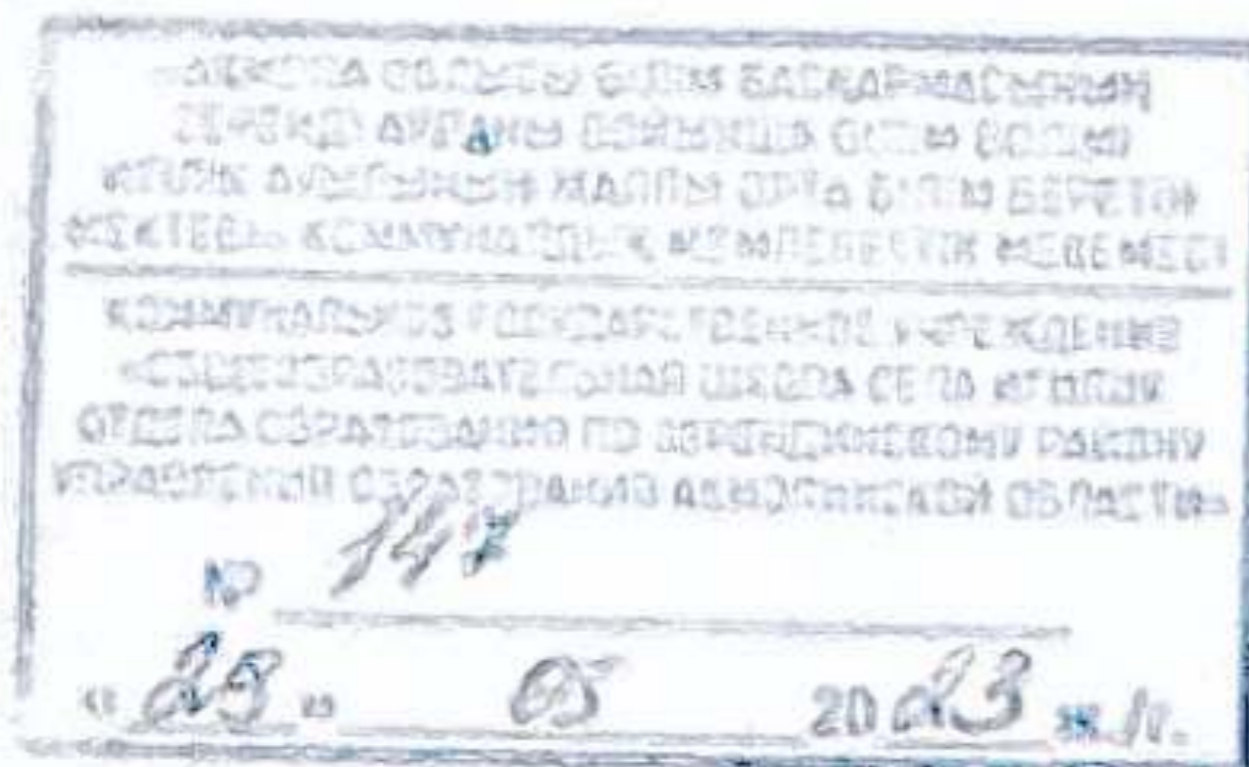 АҚМОЛА ОБЛЫСЫ БІЛІМ БАСҚАРМАСЫНЫҢ
ЗЕРЕНДІ АУДАНЫ БОЙЫНША БІЛІМ БӨЛІМІ
АУЫЛЫНЫҢ ЖАЛПЫ ОРТА БІЛІМ БЕРЕТІН
МЕКТЕБІ» КОММУНАЛДЫҚ МЕМЛЕКЕТТІК МЕКЕМЕСІ
КОММУНАЛЬНОЕ ГОСУДАРСТВЕННОЕ УЧРЕЖДЕНИЕ
«ОБЩЕОБРАЗОВАТЕЛЬНАЯ ШКОЛА СЕЛА
ОТДЕЛА ОБРАЗОВАНИЯ ПО ЗЕРЕНДИНСКОМУ РАЙОНУ
УПРАВЛЕНИЯ ОБРАЗОВАНИЯ АКМОЛИНСКОЙ ОБЛАСТИ»
№ 147
« 25 » 05 2023 ж./г.